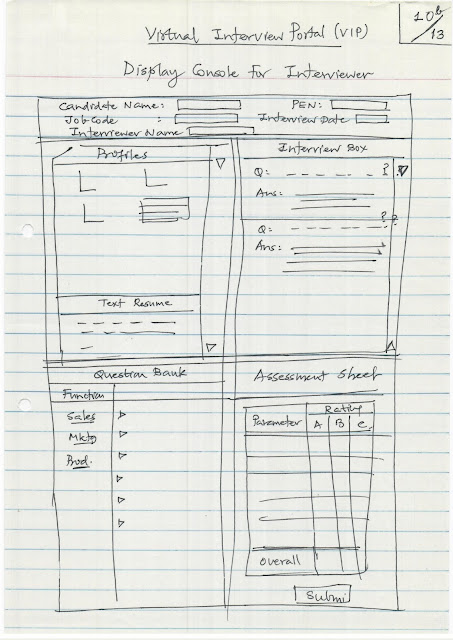 10 of
13
Virtual Interview Portal (VIP)
Display Console For Interviewer
Candidate Name:
PEN:
Job Code :
Interview Date
Interviewer Name
Profiles
Interview Box
Q: ?
Ans:
? ?
Q:
Ans:
Text Resume
Question Bank
Assessment Sheet
Function
Sales
Mktg
Prod.
Rating
Parameter A B C
Overall
Submi